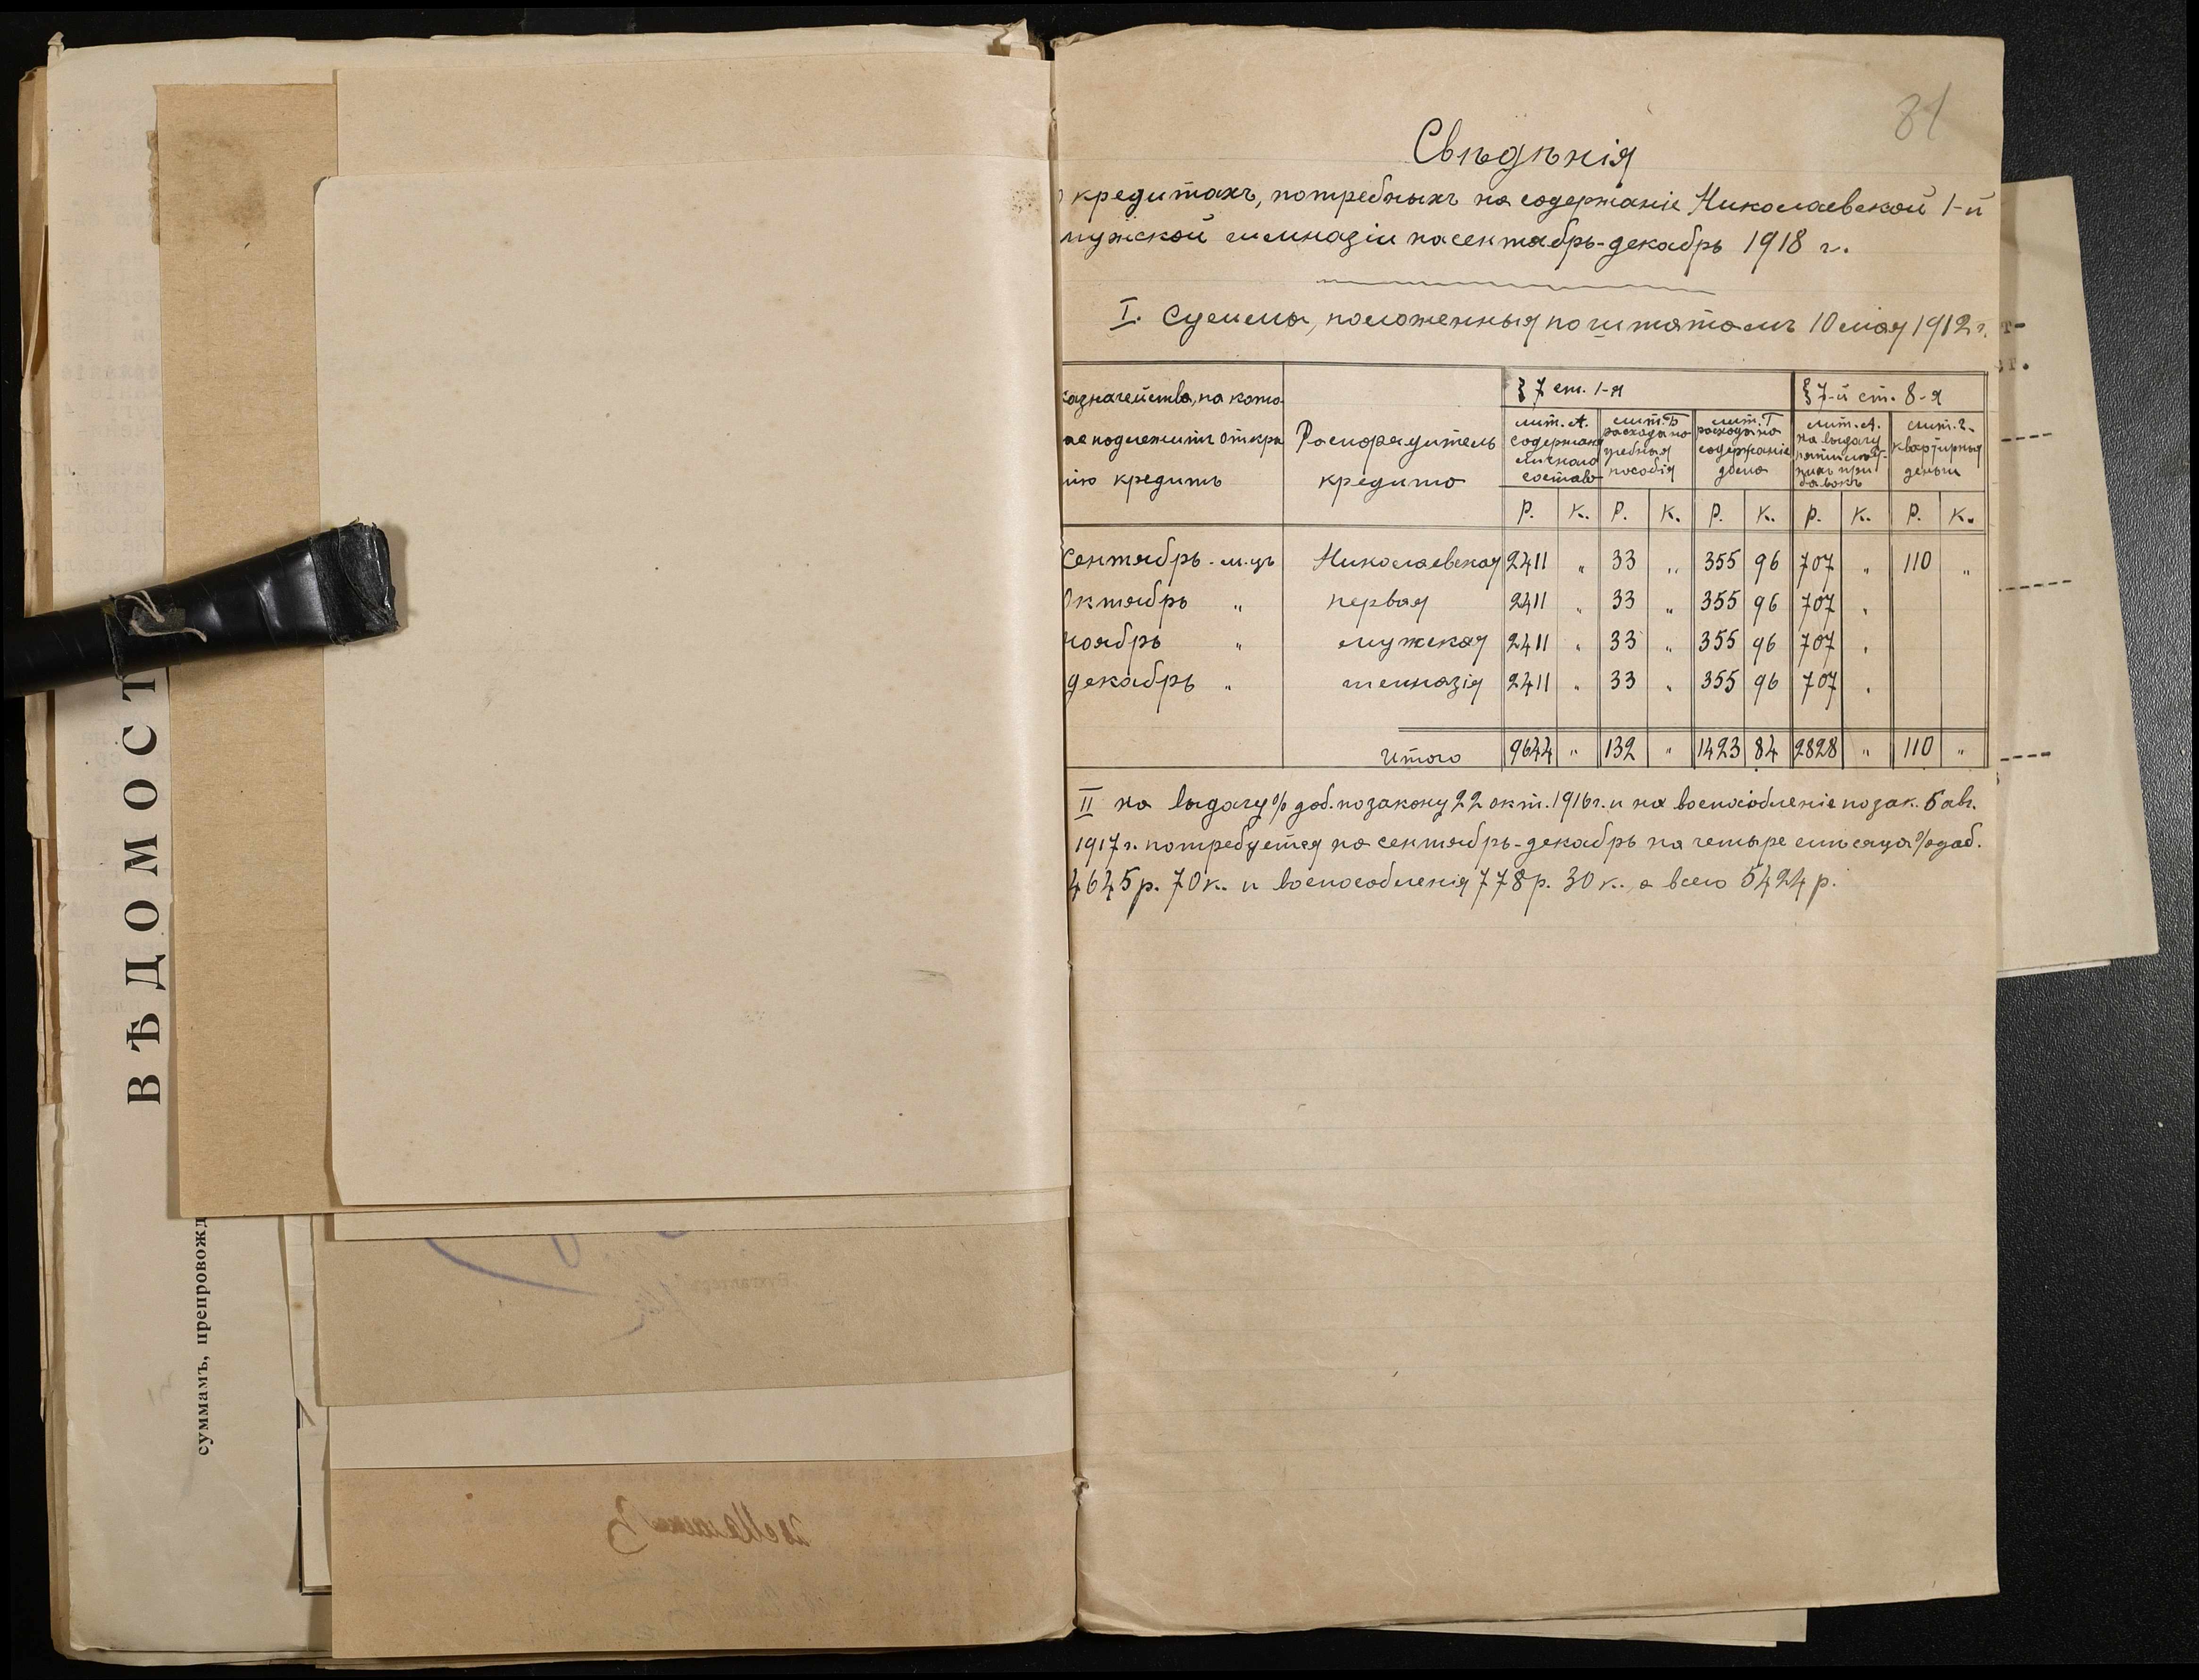 ВѢДОМОСТ
суммамъ, препровожд
81
Свѣдѣнія
кредитахъ, потребныхъ на содержаніе Николаевской 1-й
мужской гимназіи на сентябрь-декабрь 1918 г.
I. Суммы, положенныя по штатамъ 10 мая 1912 г.
казначейства, на кото- | Распорядитель | § 7 ст. 1-я | § 7-й ст. 8-я
ае подлежитъ откры
ію кредитъ | кредита
лит. А. содержаніе личнаго состава | лит. Б расхода на учебныя пособія | лит. Г расхода на содержаніе дома | лит. А. на выдачу пятилѣт- нихъ при бавокъ | лит. 2. квартирныя деньги
Р. | К. | Р. | К. | Р. | К. | Р. | К. | Р. | К.
Сентябрь м-цъ | Николаевская | 2411 | „ | 33 | „ | 355 | 96 | 707 | „ | 110 | „
Октябрь „ | первая | 2411 | „ | 33 | „ | 355 | 96 | 707 | „
ноябрь „ | мужская | 2411 | „ | 33 | „ | 355 | 96 | 707 | „
декабрь „ | гимназія | 2411 | „ | 33 | „ | 355 | 96 | 707 | „
Итого | 9644 | „ | 132 | „ | 1423 | 84 | 2828 | „ | 110 | „
II на выдачу % доб. по закону 22 окт. 1916 г. и на воспособленіе по зак. 5 авг.
1917 г. потребуется на сентябрь-декабрь на четыре мѣсяца % доб.
4645 р. 70 к. и воспособленія 778 р. 30 к., а всего 5424 р.